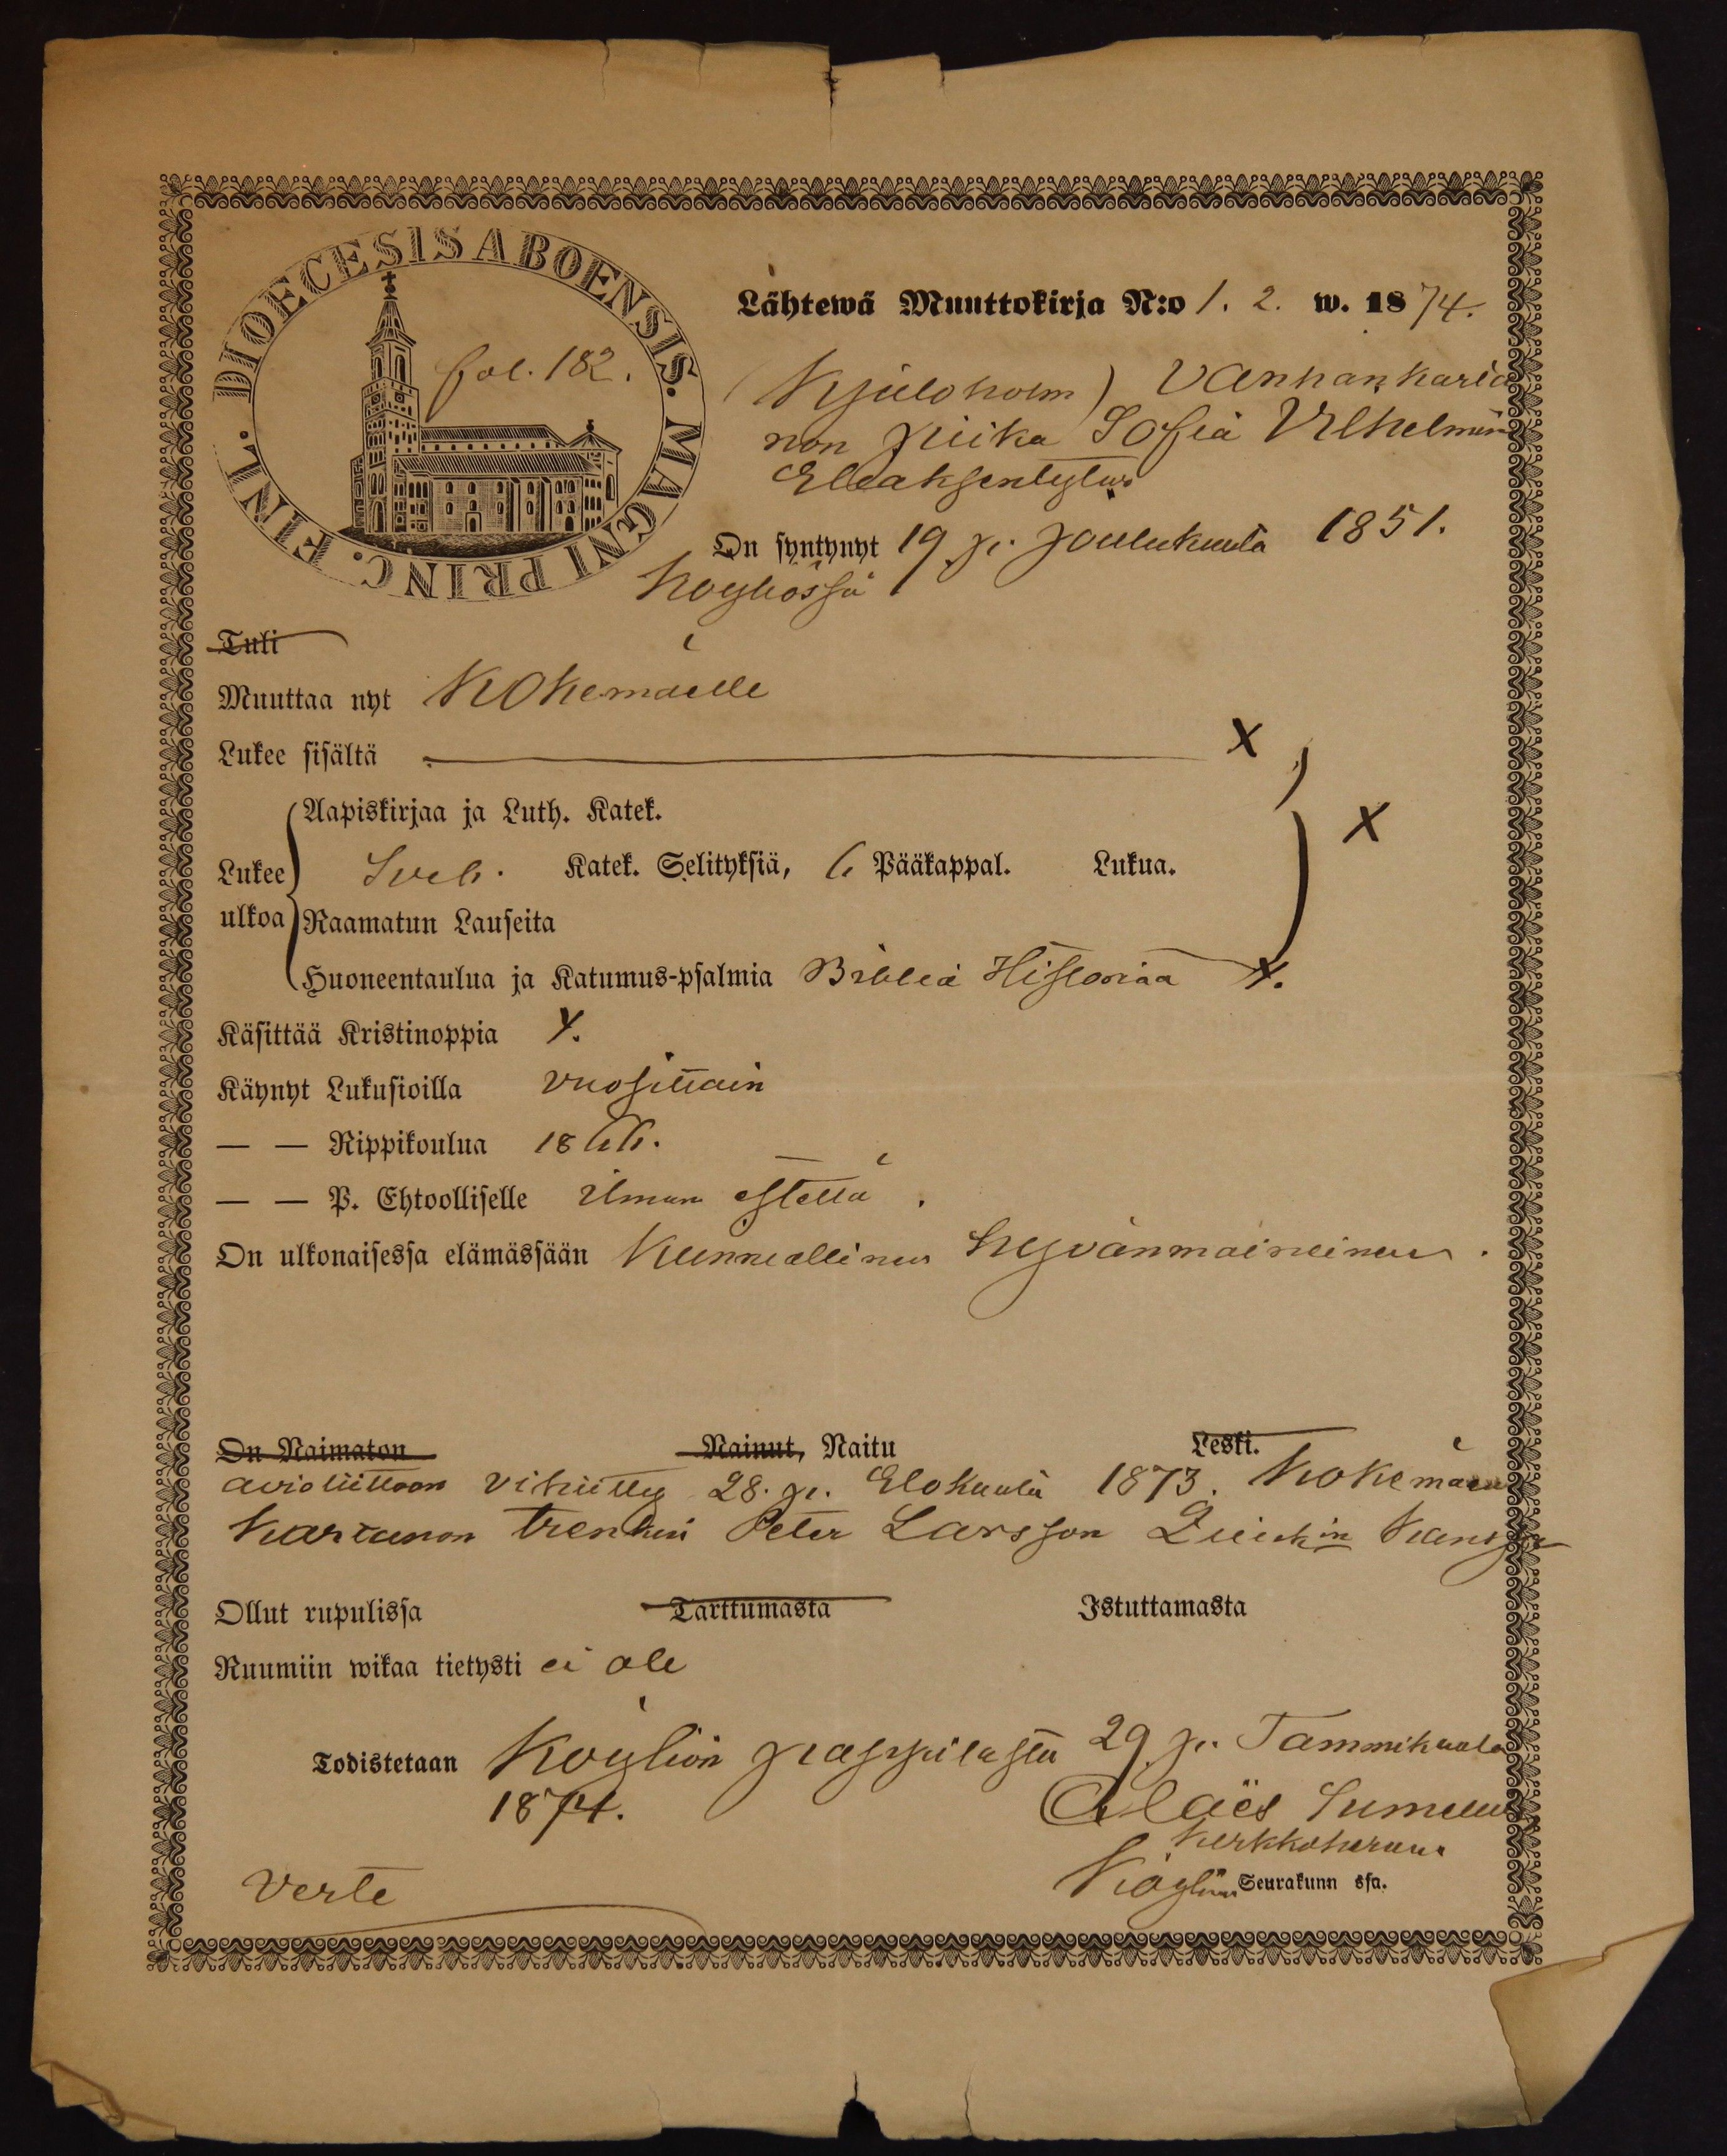 DIOECESIS ABOENSIS. MAGNI PRINC. FINL.
fol. 182.
Lähtewä Muuttokirja N:o 1. 2. w. 1874.
(Kjuloholm) Vanhankarta
non piika Sofia Vilhelmina
On syntynyt 19 p. Joulukuuta 1851.
Köyliössä
Tuli
Muuttaa nyt Kokemäelle
Lukee sisältä x
Aapiskirjaa ja Luth. Katek. x
Lukee Sveb. Katek. Selityksiä, 6 Pääkappal. Lukua.
ulkoa Raamatun Lauseita
Huoneentaulua ja Katumus-psalmia Biblia Historiaa x.
Käsittää Kristinoppia x.
Käynyt Lukusioilla vuosittain
— — Rippikoulua 1866.
— — P. Ehtoolliselle ilman estettä.
On ulkonaisessa elämässään Kunniallinen hyvänmaineinen.
On Naimaton Nainut, Naitu Leski.
avioliittoon vihitty 28. p. Elokuuta 1873. Kokemäen
Kartanon trenkin Peter Larsson Quickin kanssa
Ollut rupulissa Tarttumasta Istuttamasta
Ruumiin wikaa tietysti ei ole
Todistetaan Köyliön pappilasta 29 p. Tammikuuta
1874. Claës
Kirkkoherra.
Verte Köyliön Seurakunn ssa.